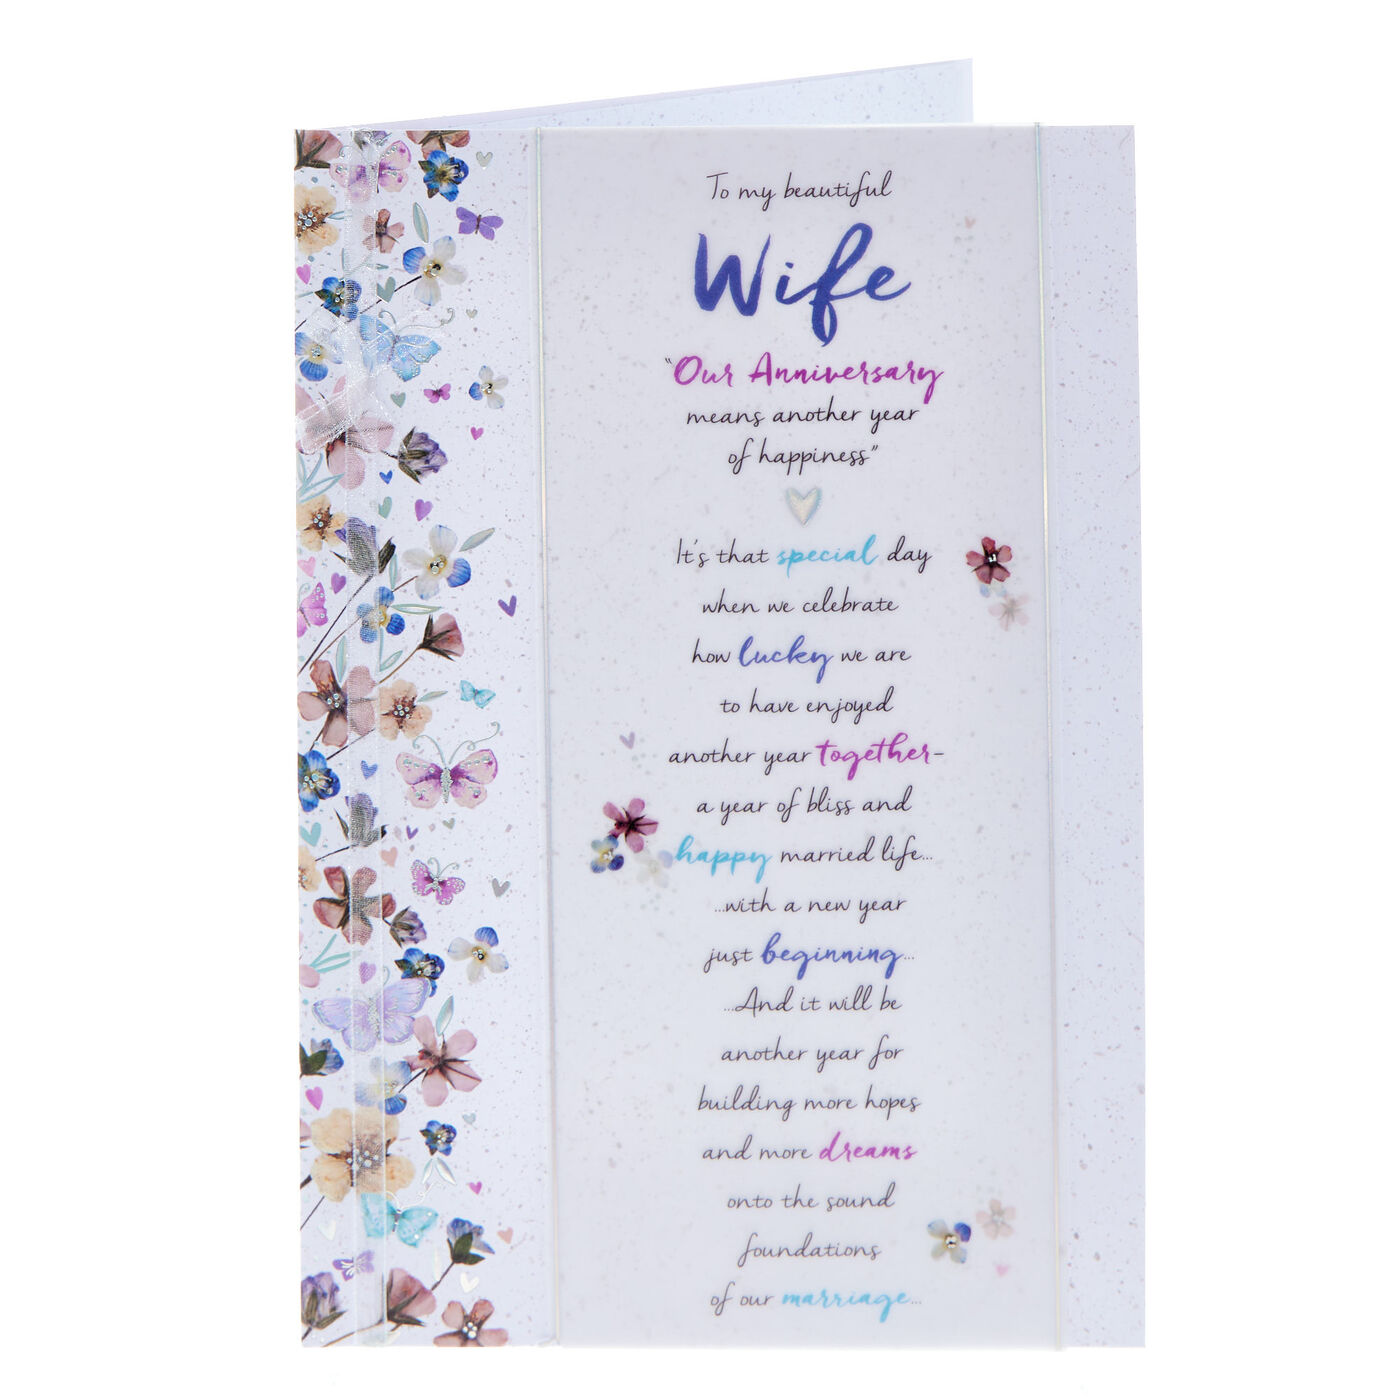 To my beautiful
Wife
"Our Anniversary
means another year
of happiness"
It's that special day
when we celebrate
how lucky we are
to have enjoyed
another year together-
a year of bliss and
happy married life...
...with a new year
just beginning...
...And it will be
another year for
building more hopes
and more dreams
onto the sound
foundations
of our marriage...